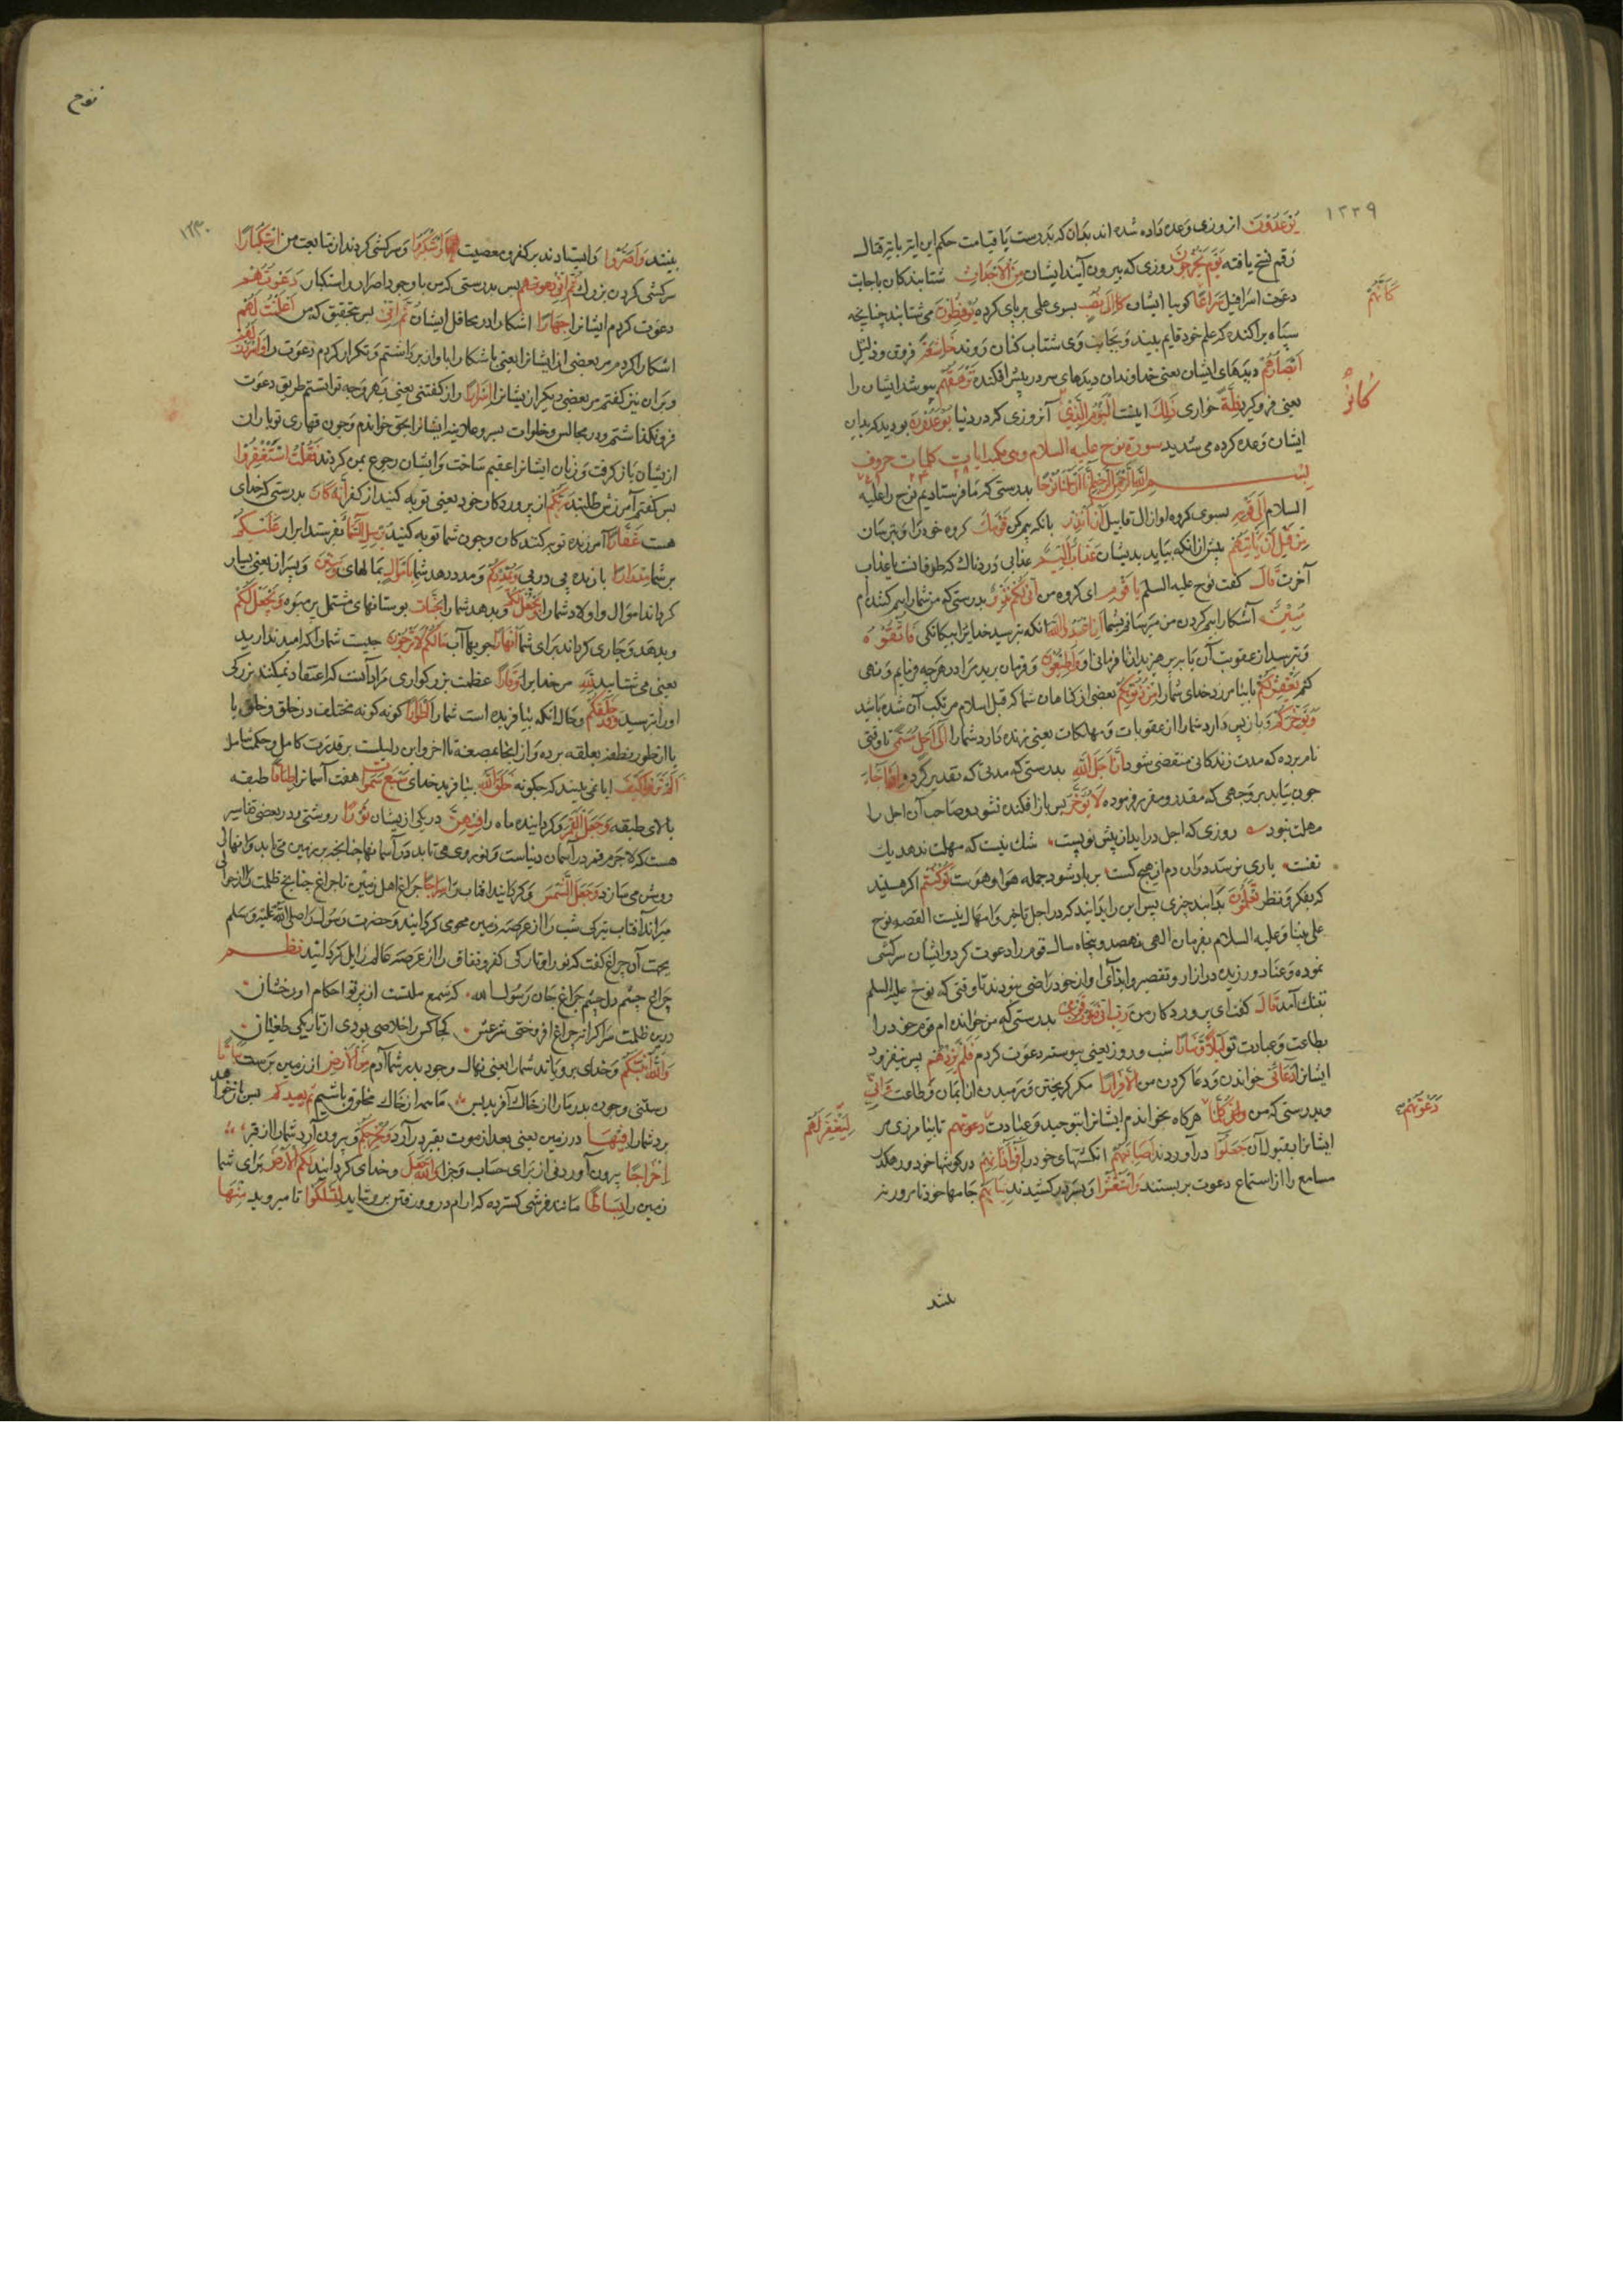 ۱۲۳۹
یُوعَدُونَ از روزی وعده داده شده اند بدان که بدرستی تا قیامت حکم این آیة بآیة قتال
رقم نسخ یافته یَوْمَ یَخْرُجُونَ روزی که بیرون آیند ایشان مِنَ الْأَجْدَاثِ شتابندکان باجابت
دعوت اسرافیل سِرَاعًا کویا ایشان کَأَنَّهُمْ إِلَی نُصُبٍ بسوی علمی برپای کرده یُوفِضُونَ می شتابند چنانچه
سپاه پراکنده که علم خود قایم بیند و بجانب وی شتاب کنان روند خَاشِعَةً فروق و ذلیل
أَبْصَارُهُمْ دیدهای ایشان یعنی خداوندان دیدهای سر در پیش افکنده تَرْهَقُهُمْ بپوشد ایشان را
یعنی فرو کیرد ذِلَّةٌ خواری ذَلِكَ اینست الْیَوْمُ الَّذِی آنروزی کردر دنیا کَانُوا یُوعَدُونَ بودید که بدان
ایشان وعده کرده می شدید سورة نوح علیه السلام وهی مکیة آیات کلمات حروف
بسم الله الرحمن الرحیم إِنَّا أَرْسَلْنَا نُوحًا بدرستی که ما فرستادیم نوح را علیه
السلام إِلَی قَوْمِهِ بسوی کروه او از ال قابیل أَنْ أَنْذِرْ بانکه بیم کن قَوْمَكَ کروه خود را و بترسان
مِنْ قَبْلِ أَنْ یَأْتِیَهُمْ پیش از انکه بیاید بدیشان عَذَابٌ أَلِیمٌ عذابی دردناک که طوفانست یا عذاب
آخرت قَالَ کفت نوح علیه السلم یَا قَوْمِ ای کروه من إِنِّی لَكُمْ نَذِیرٌ بدرستی که من شما را بیم کننده ام
مُبِینٌ آشکارا بیم کردن من میرسانم بشما أَنِ اعْبُدُوا اللَّهَ انکه بپرسید خدایرا بیکانکی وَاتَّقُوهُ
و بترسید از عقوبت آن بپرهیزید از نافرمانی او وَأَطِیعُونِ و فرمان برید مرا در هرچه فرمایم و نهی
کنم یَغْفِرْ لَكُمْ تا بیامرزد خدای شما را مِنْ ذُنُوبِكُمْ بعضی از کناهان شما که قبل اسلام مرتکب آن شده باشید
وَیُؤَخِّرْكُمْ و باز پس دارد شما را از عقوبات و مهلکات یعنی زنده دارد شما را إِلَی أَجَلٍ مُسَمًّی تا وقتی
نام برده که مدت زندکانی منقضی شود إِنَّ أَجَلَ اللَّهِ بدرستی که مدتی که تقدیر کرده إِذَا جَاءَ
چون بیاید بر وجهی که مقدر و مقرر فرموده لَا یُؤَخَّرُ پس باز افکنده نشود و صاحب آن اجل را
مهلت نبود روزی که اجل در آید از پیش و پست شک نیست که مهلت ندهد یک
نفست یاری نرسد دران دم از هیچ کست بر باد شود جمله هوا و هوست لَوْ كُنْتُمْ اکر هستید
که بفکر و نظر تَعْلَمُونَ بدانید چیزی پس این را بدانید که در اجل تاخیر و امهال نیست القصه نوح
علی نبینا و علیه السلام بفرمان الهی نهصد و پنجاه سال قوم را دعوت کرد و ایشان سرکشی
نموده و عناد ورزیدند در آزار و تقصیر و ایذای او از خود راضی نبودند تا وقتی که نوح علیه السلم
بتنک آمد قَالَ کفت ای پروردکار من رَبِّ إِنِّی دَعَوْتُ قَوْمِی بدرستی که من خوانده ام قوم خود را
بطاعت و عبادت تو لَیْلًا وَنَهَارًا شب و روز یعنی پیوسته دعوت کردم فَلَمْ یَزِدْهُمْ پس نیفزود
ایشانرا دُعَائِی خواندن و دعا کردن من إِلَّا فِرَارًا مکر کریختن و رمیدن از ایمان و طاعت وَإِنِّی
و بدرستی که من كُلَّمَا هرکاه بخواندم ایشانرا بتوحید و عبادت دَعَوْتُهُمْ تا بیامرزی مر
ایشانرا بقبول آن جَعَلُوا درآوردند أَصَابِعَهُمْ انکشتهای خود را فِی آذَانِهِمْ در کوشها خود و رهکذر
مسامع را از استماع دعوت بربستند وَاسْتَغْشَوْا و بسر در کشیدند ثِیَابَهُمْ جامها خود تا مرا و نیز
كَأَنَّهُمْ
كَانُوا
دَعَوْتُهُمْ
لِتَغْفِرَ لَهُمْ
نوح
۱۲۴۰
نبینند وَأَصَرُّوا و ایستادند بر کفر و معصیت وَاسْتَكْبَرُوا و سرکشی کردند از متابعت من اسْتِكْبَارًا
سرکشی کردن بزرك ثُمَّ إِنِّی دَعَوْتُهُمْ پس بدرستی که من با وجود اصرار و استکبار دَعَوْتُهُمْ
دعوت کردم ایشانرا جِهَارًا اشکارا در محافل ایشان ثُمَّ إِنِّی پس بتحقیق که من أَعْلَنْتُ لَهُمْ
اشکارا کردم مر بعضی از ایشانرا یعنی باشکارا باواز برداشتم و تکرار کردم دعوت را وَأَسْرَرْتُ لَهُمْ
و پنهان نیز کفتم مر بعضی دیکر از ایشانرا إِسْرَارًا راز کفتنی یعنی بهر وجه توانستم طریق دعوت
فرو نکذاشتم و در مجالس و خلوات بسر و علانیه ایشانرا بحق خواندم و چون قهاری تو باران
از یشان باز کرفت و زنان ایشانرا عقیم ساخت و ایشان رجوع بمن کردند فَقُلْتُ اسْتَغْفِرُوا
پس کفتم آمرزش طلبید رَبَّكُمْ از پروردکار خود یعنی توبه کنید از کفر إِنَّهُ كَانَ بدرستی که خدای
هست غَفَّارًا آمرزنده توبه کنندکان و چون شما توبه کنید یُرْسِلِ السَّمَاءَ بفرستد ابر را عَلَیْكُمْ
بر شما مِدْرَارًا بارنده پی در پی وَیُمْدِدْكُمْ و مدد دهد شما را بِأَمْوَالٍ بمالهای وَبَنِینَ و پسران یعنی بسیار
کرداند اموال و اولاد شما را وَیَجْعَلْ لَكُمْ و بدهد شما را جَنَّاتٍ بوستانهای مشتمل بر میوه وَیَجْعَلْ لَكُمْ
و بدهد و جاری کرداند برای شما أَنْهَارًا جویها آب مَا لَكُمْ لَا تَرْجُونَ چیست شما را که امید ندارید
یعنی می شناسید لِلَّهِ مر خدایرا وَقَارًا عظمت و بزرکواری مراد آنست که اعتقاد نمیکنید بزرکی
او را و نترسید وَقَدْ خَلَقَكُمْ و حال انکه بیافریده است شما را أَطْوَارًا کونه کونه مختلف در خلق و خلق یا
بااز طور نطفه بعلقه برده و از انجا بمضغه تا آخر و این دلیلست بر قدرت کامل و حکمت شامل
أَلَمْ تَرَوْا كَیْفَ ایا نمی بینند که چکونه خَلَقَ اللَّهُ بیافرید خدای سَبْعَ سَمَوَاتٍ هفت آسمانرا طِبَاقًا طبقه
بالای طبقه وَجَعَلَ الْقَمَرَ و کردانیده ماه را فِیهِنَّ در یکی از یشان نُورًا روشنی و در بعضی تفاسیر
هست که لاجرم قمر در آسمان دنیاست و نور وی می تابد در آسمانها چنانچه بر زمین می تابد و انها را
روشن می سازد وَجَعَلَ الشَّمْسَ و کردانید افتاب را سِرَاجًا چراغ اهل زمین تا چراغ چنانچه ظلمت را از حوالی
میراند آفتاب تیرکی شب را از عرصه زمین محو می کرداند و حضرت رسول را صلی الله علیه و سلم
بجهت آن چراغ کفت که نور او تاریکی کفر و نفاق را از عرصه عالم زایل کردانید نظم
چراغ چشم دل چشم چراغ جان رسول الله که شمع ملتست از پرتو احکام او رخشان
درین ظلمت سرا کر از چراغ افروختی شرعش کجا کس را خلاصی بودی از تاریکی طغیان
وَاللَّهُ أَنْبَتَكُمْ و خدای برویاند شما را یعنی نهال وجود پدر شما آدم مِنَ الْأَرْضِ از زمین برست نَبَاتًا
رستنی و چون پدر ما را از خاک آفرید پس ما همه از خاک مخلوق باشیم ثُمَّ یُعِیدُكُمْ پس باز خواهد
برد شما را فِیهَا در زمین یعنی بعد از موت بقبر در آرد وَیُخْرِجُكُمْ و بیرون آرد شما را از قبر
إِخْرَاجًا بیرون آوردنی از برای حساب و جزا وَاللَّهُ جَعَلَ و خدای کردانید لَكُمُ الْأَرْضَ برای شما
زمین را بِسَاطًا مانند فرشی کسترده که ارام در و و رفتن بر و شاید لِتَسْلُكُوا تا میروید مِنْهَا